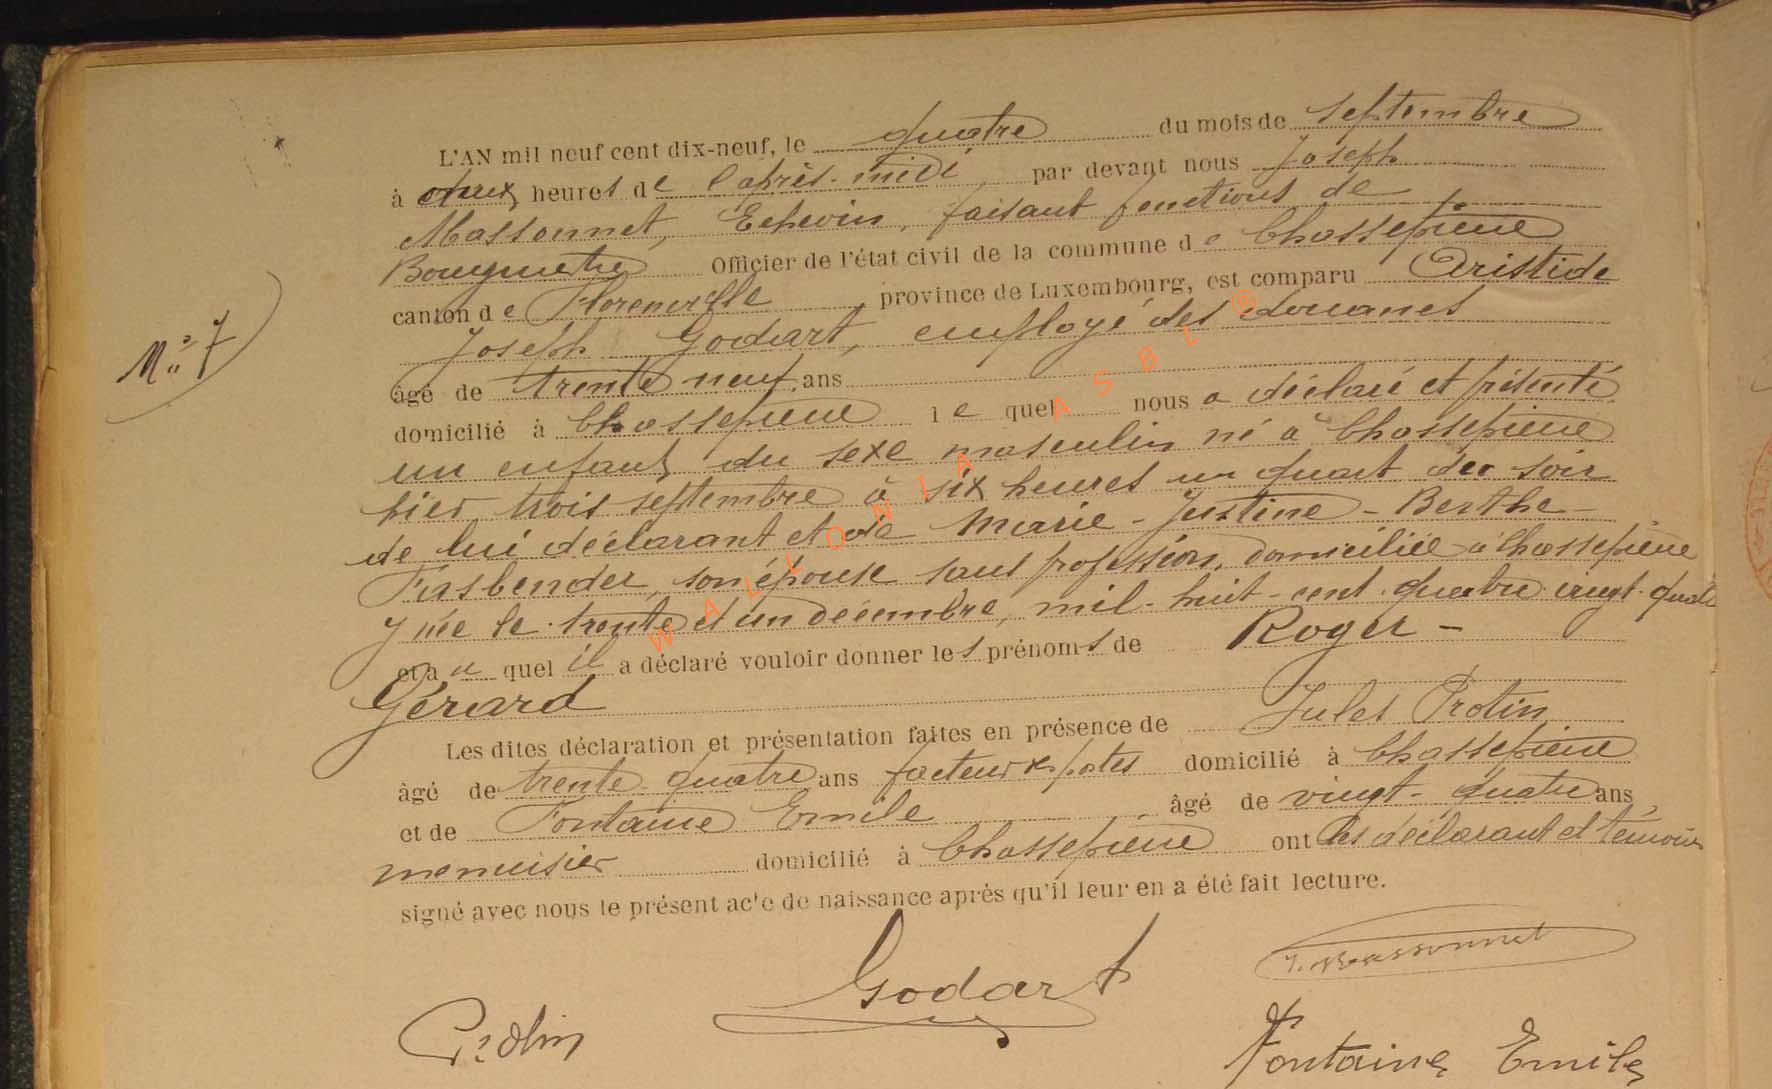 L'AN mil neuf cent dix-neuf, le quatre du mois de septembre
à deux heures de l'après-midi, par devant nous Joseph
Massonnet, Echevin, faisant fonctions de
Bourgmestre Officier de l'état civil de la commune de Chassepierre
canton de Florenville, province de Luxembourg, est comparu Aristide
Joseph Godart, employé des douanes
âgé de trente neuf ans
N° 7
domicilié à Chassepierre lequel nous a déclaré et présenté
un enfant du sexe masculin né à Chassepierre
hier trois septembre à six heures un quart du soir
de lui déclarant et de Marie-Justine-Berthe-
Fasbender, son épouse sans profession, domiciliée à Chassepierre
y née le trente et un décembre, mil-huit-cent-quatre vingt-quatre
et au quel il a déclaré vouloir donner les prénoms de Roger-
Gérard
Les dites déclaration et présentation faites en présence de Jules Protin
âgé de trente quatre ans facteur des postes domicilié à Chassepierre
et de Fontaine Emile, âgé de vingt-quatre ans,
menuisier domicilié à Chassepierre ont les déclarant et témoins
signé avec nous le présent acte de naissance après qu'il leur en a été fait lecture.
J. Massonnet
Godart
Protin
Fontaine Emile
WALLONIA ASBL ®